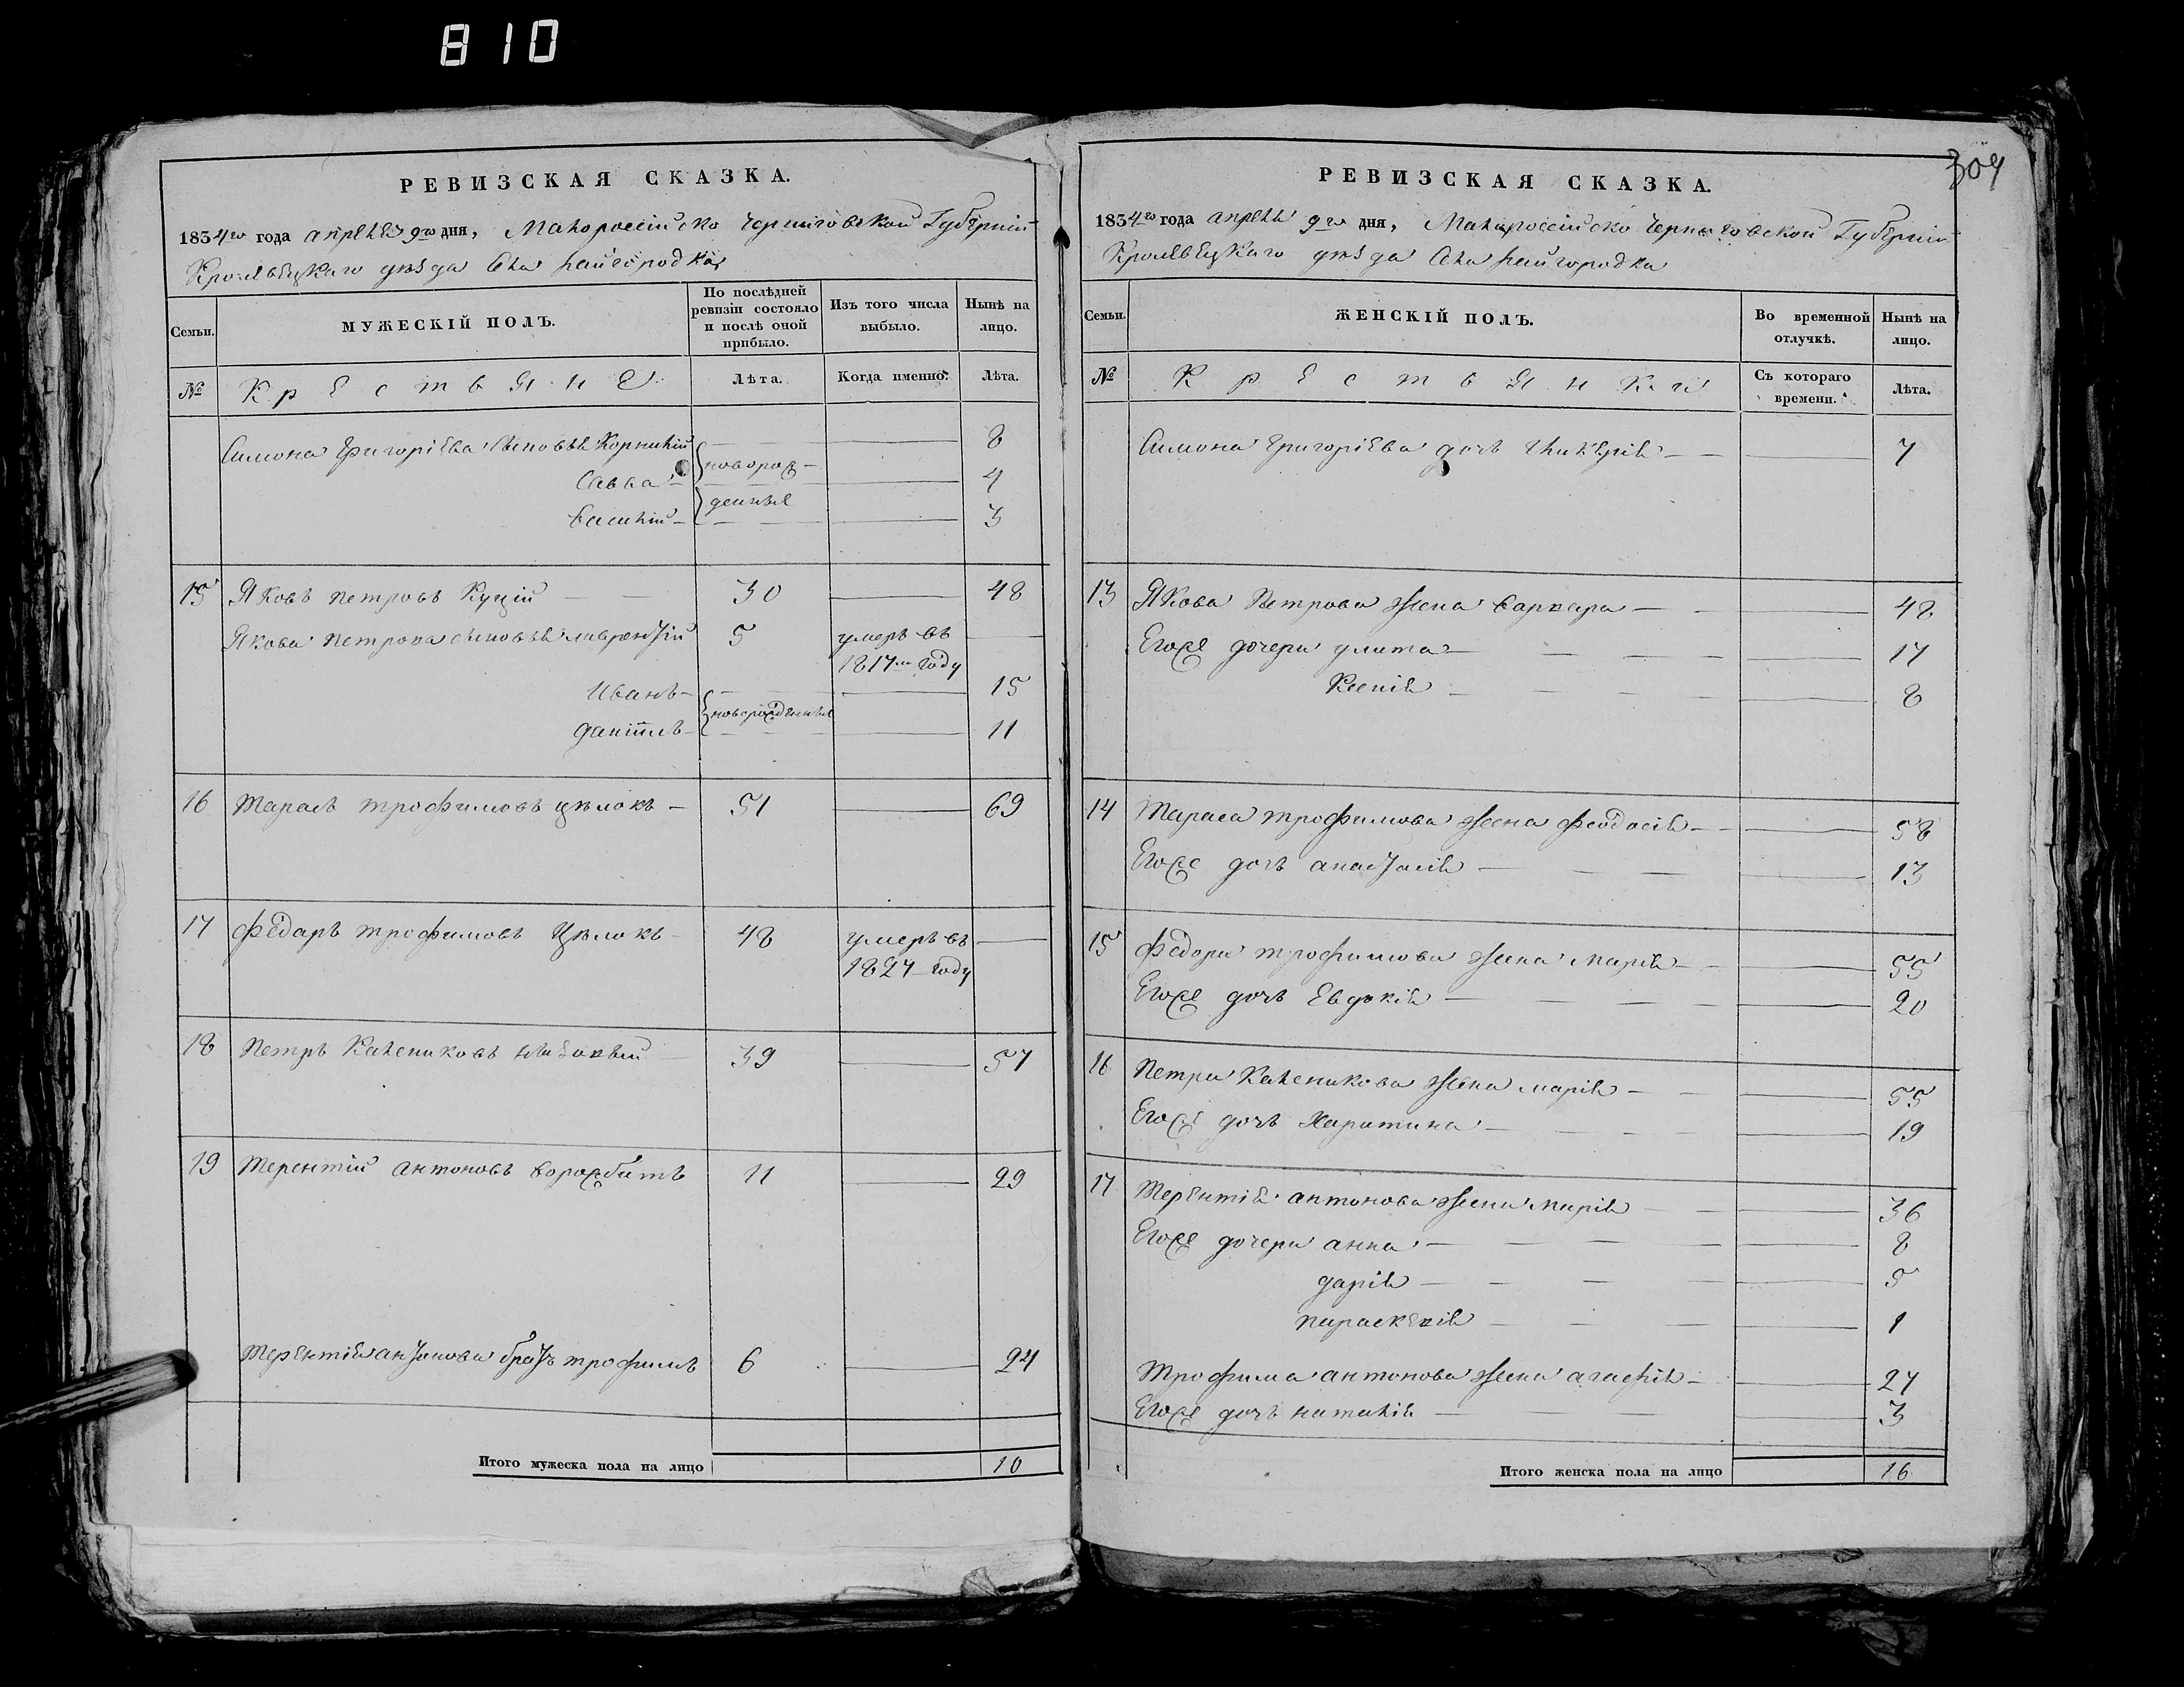 810
304
РЕВИЗСКАЯ СКАЗКА.
1834го года апреля 9го дня, Малороссійско Черниговской Губерніи
Кролевецкаго уѣзда Села Райгородка
Семьи.
МУЖЕСКІЙ ПОЛЪ.
По послѣдней ревизіи состояло и послѣ оной прибыло.
Изъ того числа выбыло.
Нынѣ на лицо.
№
Крестьяне
Лѣта.
Когда именно.
Лѣта.
Симона Григоріева сыновья Корнилій — 8
Савва — новорож- — 4
Василій — денныя — 3
15 Яковъ Петровъ Куцій — 30 — 48
Якова Петрова сыновья Лаврентій 5 умеръ въ —
1817м году
Иванъ — 15
новорожденныя
Даніилъ — 11
16 Тарасъ Трофимовъ Цѣлокъ — 51 — 69
17 Федаръ Трофимовъ Цѣлокъ 48 умеръ въ —
1827 году
18 Петръ Калениковъ 39 — 57
19 Терентій Антоновъ Ворожбитъ 11 — 29
Терентія Антонова братъ Трофимъ 6 — 24
Итого мужеска пола на лицо 10
РЕВИЗСКАЯ СКАЗКА.
1834го года апреля 9го дня, Малороссійско Черниговской Губерніи
Кролевецкаго уѣзда Села Райгородка
Семьи.
ЖЕНСКІЙ ПОЛЪ.
Во временной отлучкѣ.
Нынѣ на лицо.
№
Крестьянки
Съ котораго времени.
Лѣта.
Симона Григоріева дочь Гликерія — — 7
13 Якова Петрова жена Варвара — — 48
Егоже дочери Улита — — 17
Ксенія — — 8
14 Тараса Трофимова жена Феодосія — — 58
Егоже дочь Анастасія — — 13
15 Федора Трофимова жена Марія — — 55
Егоже дочь Евдокія — — 20
16 Петра Каленикова жена Марія — — 55
Егоже дочь Харитина — — 19
17 Терентія Антонова жена Марія — — 36
Егоже дочери Анна — — 8
Дарія — — 5
Параскевія — — 1
Трофима Антонова жена Агафія — — 27
Егоже дочь Наталія — — 3
Итого женска пола на лицо 16